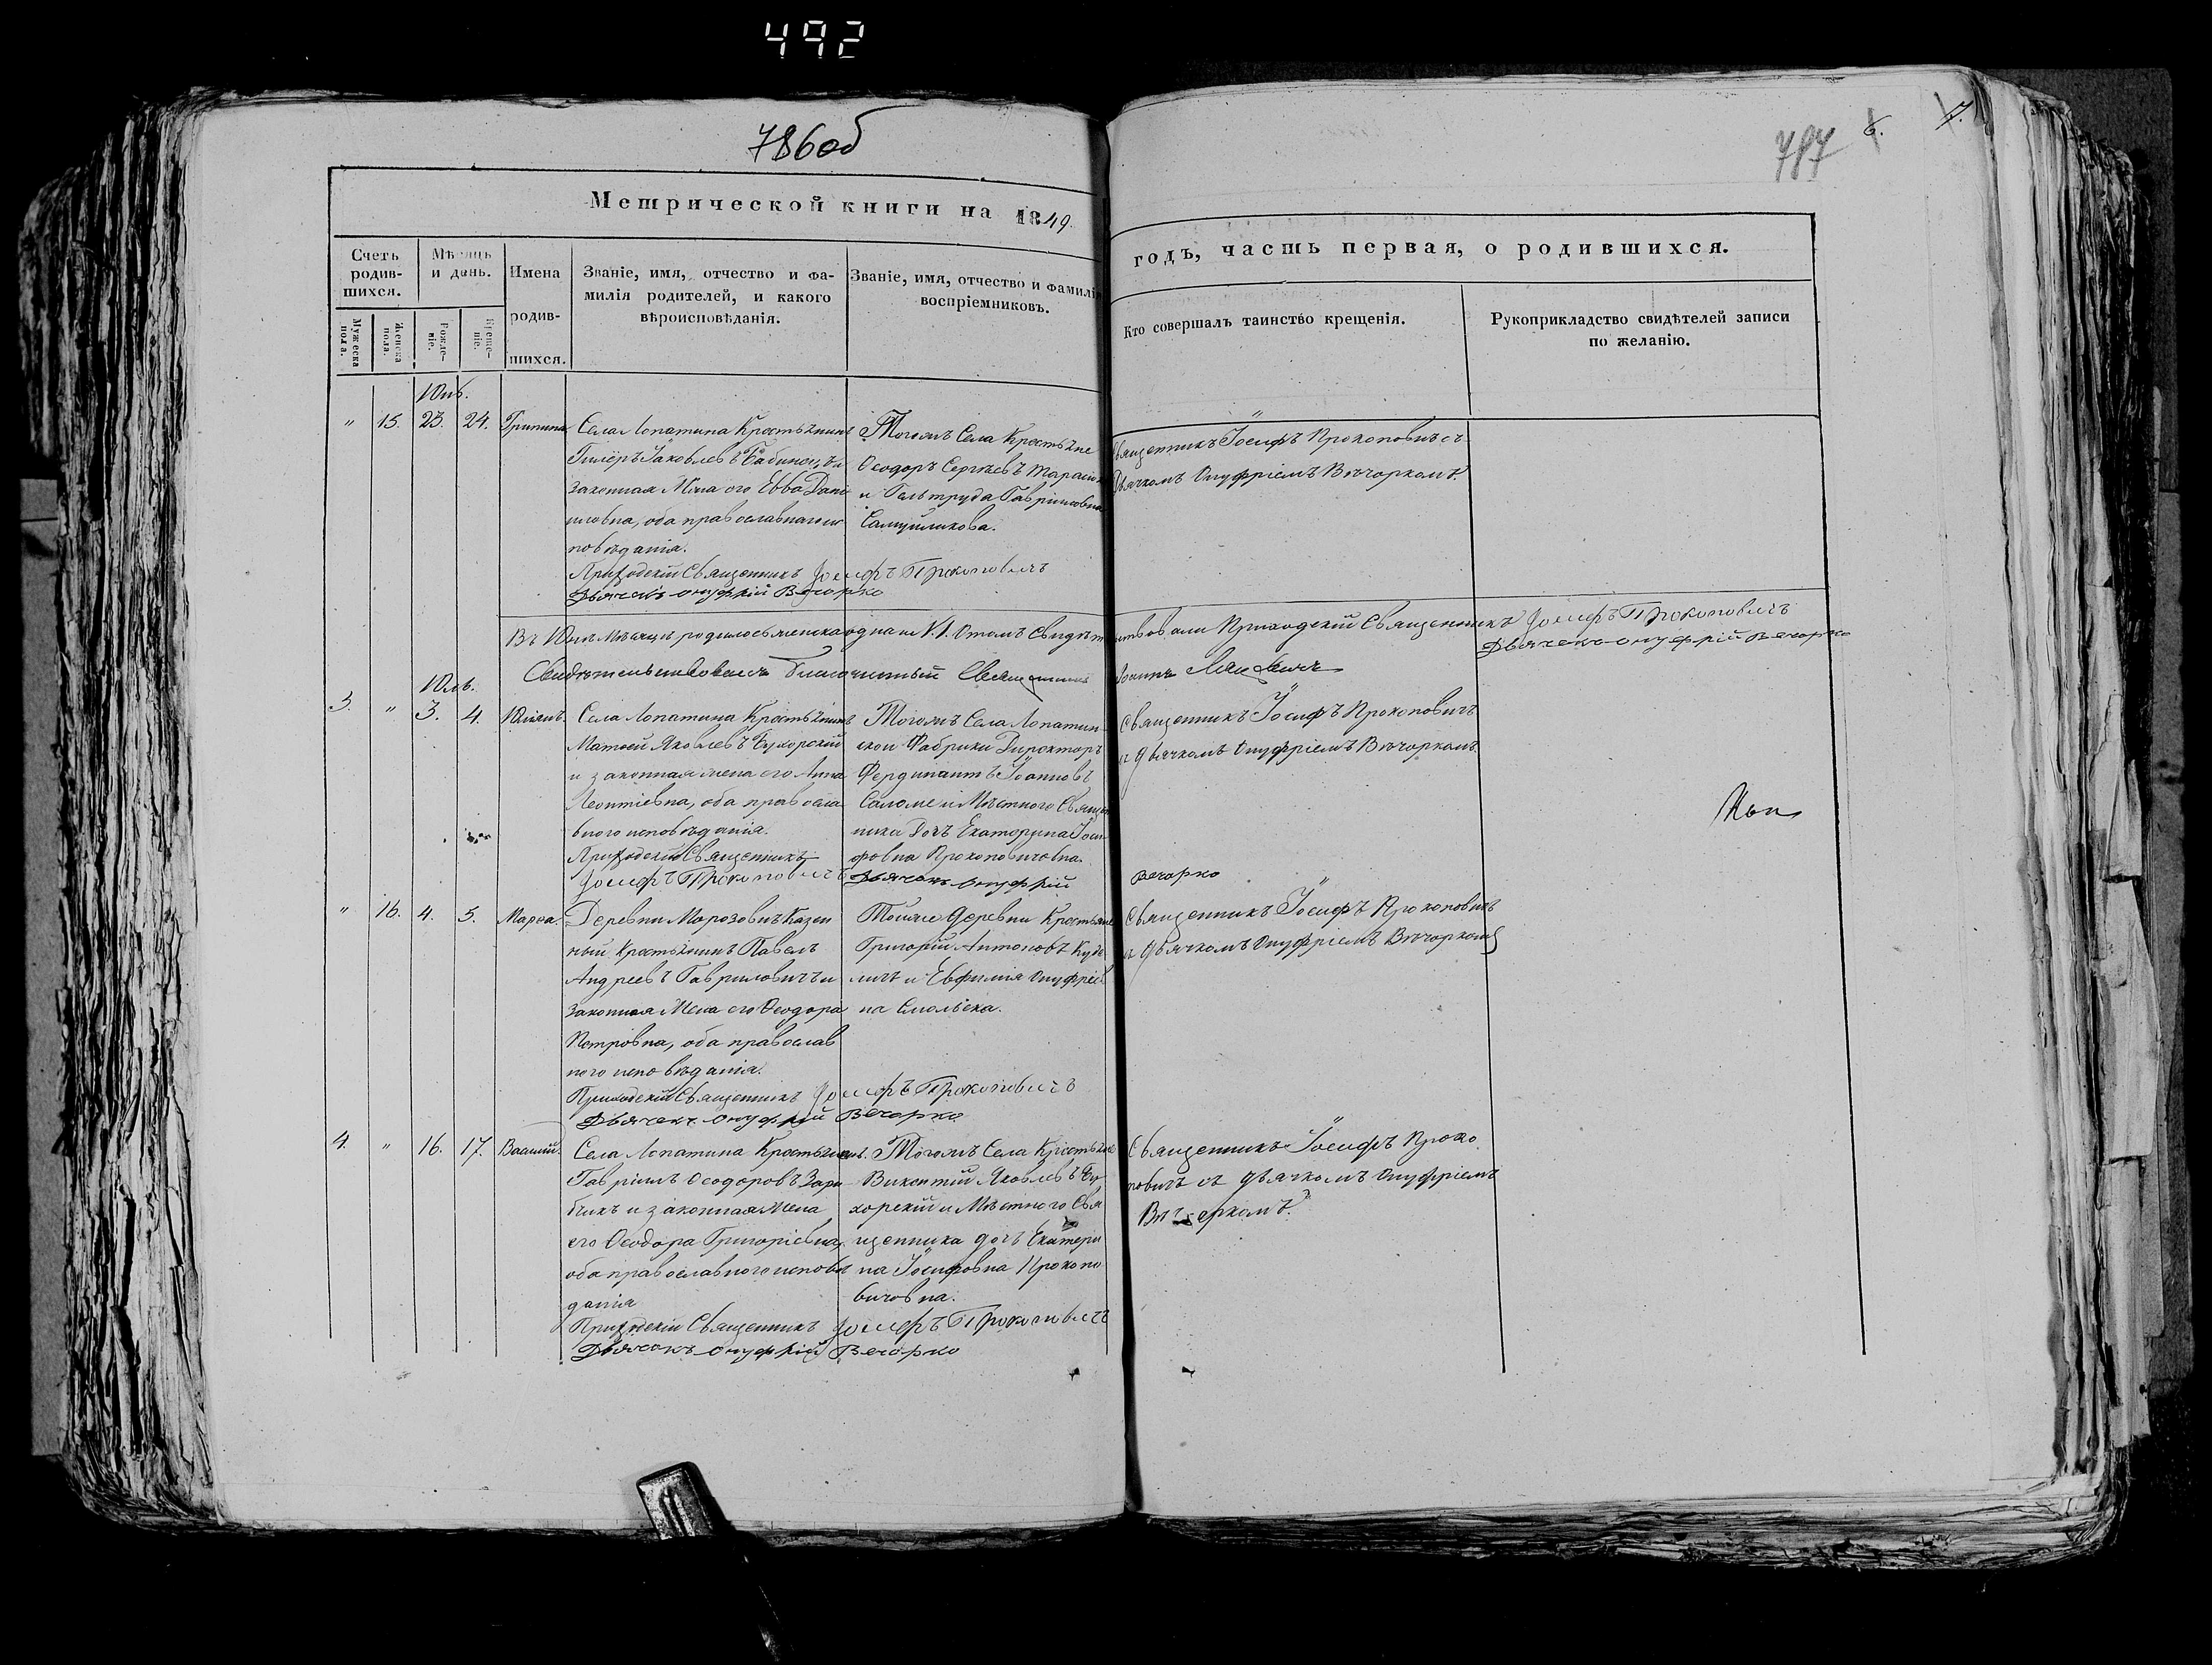 492
786об
787
6.
7.
Метрической книги на 1849.
годъ, часть первая, о родившихся.
Счетъ родив-шихся.
Мѣсяцъ и день.
Имена родив-шихся.
Званіе, имя, отчество и фа-
милія родителей, и какого
вѣроисповѣданія.
Званіе, имя, отчество и фамилія
воспріемниковъ.
Кто совершалъ таинство крещенія.
Рукоприкладство свидѣтелей записи
по желанію.
Мужеска пола.
Женска пола.
Рожде-ніе.
Креще-ніе.
Юнь.
" 15. 23. 24. Грипина
Села Лопатина Крестьянинъ
Іаковлевъ и
законная Жена его Евва Дані
иловна, оба православнаго ис
повѣданія.
Приходскій Священникъ Іосифъ Прокоповичъ
Дьячекъ Онуфрій Вечорко
Тогожъ Села Крестьяне
Ѳеодоръ Сергѣевъ
и Гавріиловна
Самуйликова.
Священникъ Іосифъ Прокоповичъ съ
Дьячкомъ Онуфріемъ Вѣчоркомъ.
Въ Юнѣ Мѣсяцѣ родилось женска одна и. 1. О томъ Свидѣтельствовали Приходскій Священникъ Іосифъ Прокоповичъ
Дьячекъ Онуфрій Вечорко
Свидѣтельствовалъ Благочинный Священникъ Іоаннъ
Юль.
3. " 3. 4. Юліянъ.
Села Лопатина Крестьянинъ
Матѳей Яковлевъ Бухорскій
и законная жена его Анна
Леонтіевна, оба правосла
вного исповѣданія.
Приходскій Священникъ
Іосифъ Прокоповичъ
Тогожъ Села Лопатин-
ской Фабрики Директоръ
Фердинантъ Іоанновъ
и Мѣстного Священ
ника Дочь Екатерина Іоси
фовна Прокоповичовна.
Дьячекъ Онуфрій Вечорко
Священникъ Іосифъ Прокоповичъ
и дьячкомъ Онуфріемъ Вѣчоркомъ.
" 16. 4. 5. Марѳа.
Деревни Морозовичъ Казен
ный Крестьянинъ Павелъ
Андреевъ Гавриловичъ и
законная Жена его Ѳеодора
Петровна, оба православ
ного исповѣданія.
Приходскій Священникъ Іосифъ Прокоповичъ
Дьячекъ Онуфрій Вечорко
Тоижъ деревни Крестьяне
Григорій Антоновъ Куде
личъ и Евфимія Онуфріев
на Смольска.
Священникъ Іосифъ Прокоповичъ
и дьячкомъ Онуфріемъ Вѣчоркомъ
4. " 16. 17. Василій.
Села Лопатина Крестьянинъ.
Гавріилъ Ѳеодоровъ Зари
бчикъ и законная Жена
его Ѳеодора Григоріевна,
оба православного исповѣ
данія
Приходскій Священникъ Іосифъ Прокоповичъ
Дьячокъ Онуфрій Вечорко
Тогожъ Села Крестьяне
Викентій Яковлевъ Бу
хорскій и Мѣстного Свя
щенника дочь Екатери
на Іосифовна Прокопо
вичовна.
Священникъ Іосифъ Проко
повичъ съ дьячкомъ Онуфріемъ
Вѣчеркомъ.